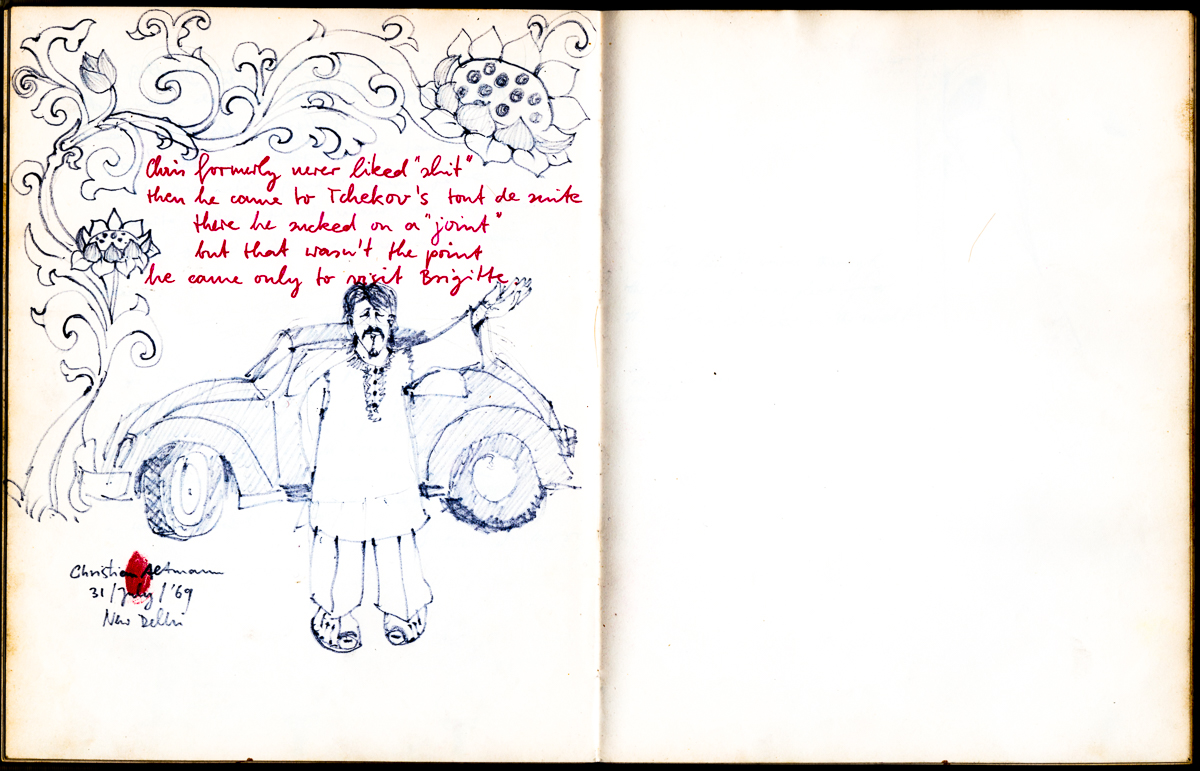 Chris formerly never liked "shit"
then he came to Tchekov's tout de suite
there he sucked on a "joint"
but that wasn't the point
he came only to visit Brigitte.
Christian Altmann
31/July/'69
New Delhi